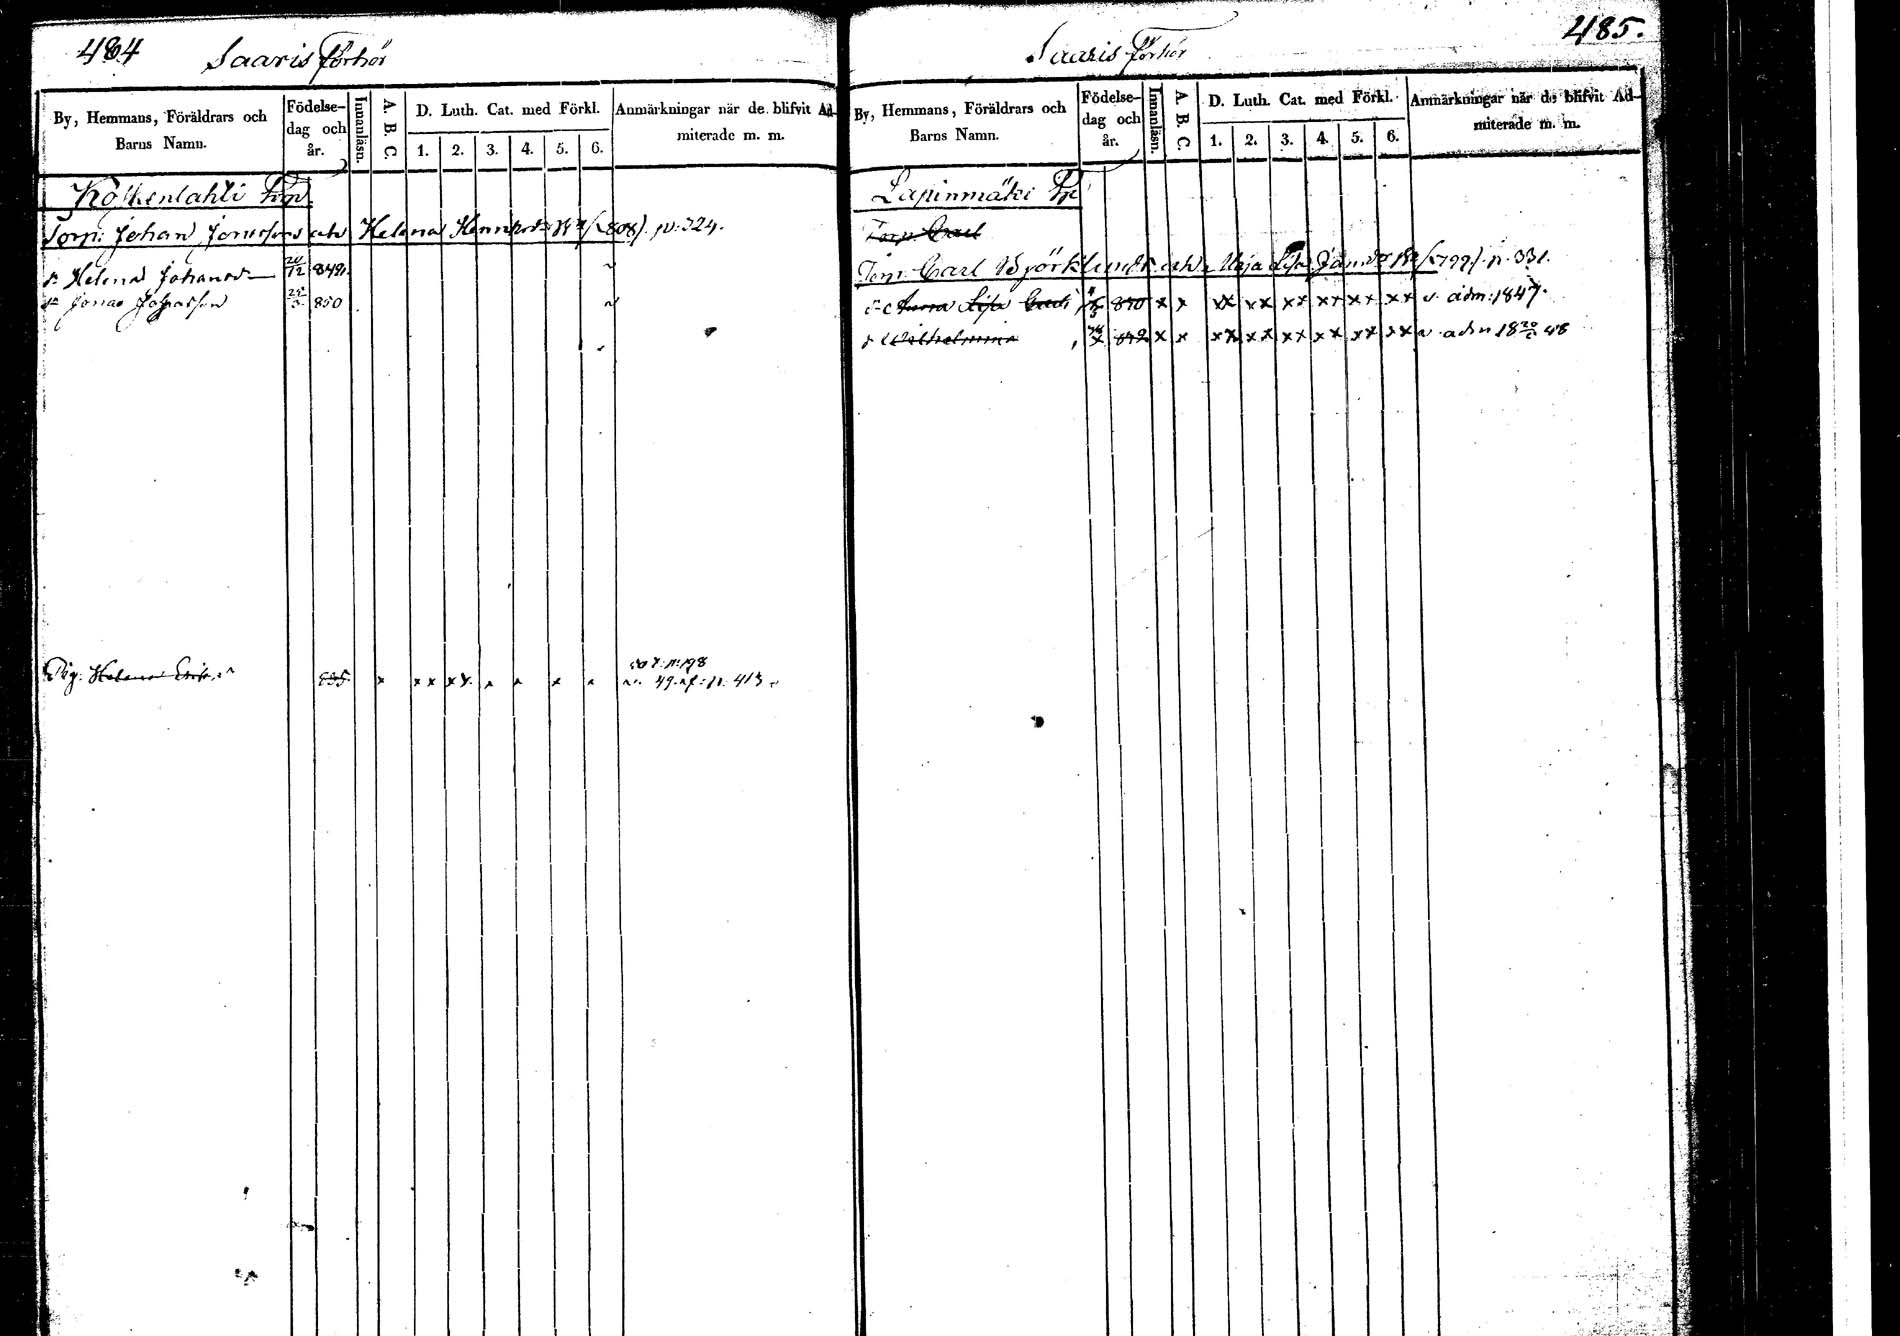 484 Saaris Förhör
By, Hemmans, Föräldrars och Barns Namn.
Födelse-dag och år.
Innanläsn.
A. B. C.
D. Luth. Cat. med Förkl.
1. 2. 3. 4. 5. 6.
Anmärkningar när de blifvit Admiterade m. m.
Torp: Johan Jonasson och Helena (808). p. 324.
Helena Johansd 20/12 849
Jonas Johansson 850
Pig. Helena 835 x x x x x x x x x 49 p. 413
485.
Saaris Förhör
By, Hemmans, Föräldrars och Barns Namn.
Födelse-dag och år.
Innanläsn.
A. B. C.
D. Luth. Cat. med Förkl.
1. 2. 3. 4. 5. 6.
Anmärkningar när de blifvit Admiterade m. m.
Lapinmäki Trp
Torp. Carl
Torp. Carl Björklund och Maja Lisa (799) p. 331.
Anna Lisa x x xx xx xx xx xx xx adm: 1847.
Wilhelmina x x xx xx xx xx xx xx adm 18 48